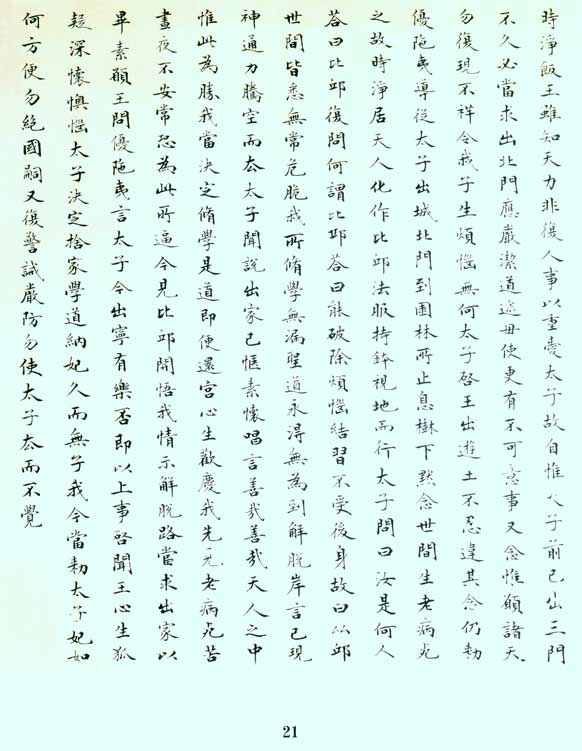 時淨飯王雖知天力非復人事以重愛太子故自惟太子前已出三門
不久必當求出北門應嚴潔道途毋使更有不可意事又念惟願諸天
勿復現不祥令我子生煩惱無何太子啓王出遊王不忍違其念仍勅
優陁夷導從太子出城北門到園林所止息樹下默念世間生老病死
之故時淨居天人化作比邱法服持鉢視地而行太子問曰汝是何人
荅曰比邱復問何謂比邱荅曰能破除煩惱結習不受後身故曰比邱
世間皆悉無常危脆我所脩學無漏聖道永得無為到解脫岸言已現
神通力騰空而去太子聞說出家已愜素懷唱言善哉善哉天人之中
惟此為勝我當決定脩學是道即便還宮心生歡慶我先元老病死苦
晝夜不安常恐為此所逼今見比邱開悟我情示解脫路當求出家以
畢素願王問優陁夷言太子今出寧有樂否即以上事啓聞王心生狐
疑深懷懊惱太子決定捨家學道納妃久而無子我今當勅太子妃如
何方便勿絕國嗣又復警誡嚴防勿使太子去而不覺
21